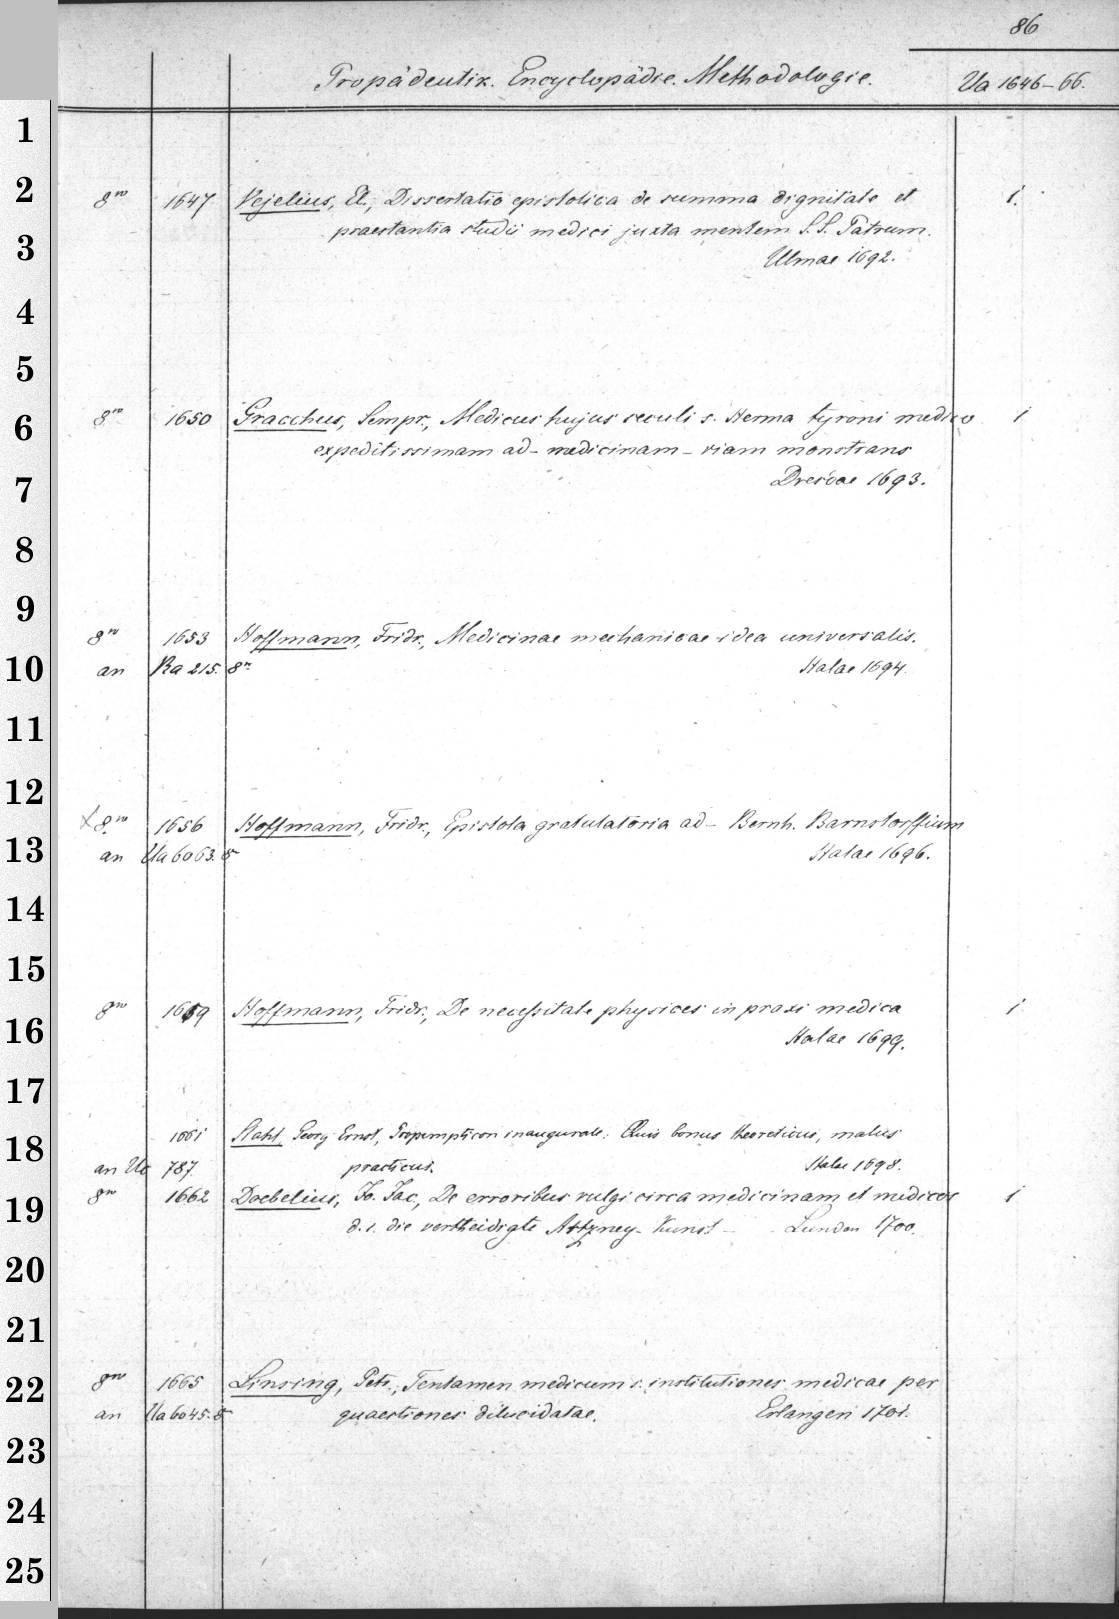 86
Propädeutik. Encyclopädie. Methodologie. Va 1646-66.
1
2
3
4
5
6
7
8
9
10
11
12
13
14
15
16
17
18
19
20
21
22
23
24
25
8vo 1647 Vejelius, El., Dissertatio epistolica de summa dignitate et 1.
praestantia studii medici juxta mentem S.S. Patrum.
Ulmae 1692.
8vo 1650 Gracchus, Sempr., Medicus hujus seculi s. Herma tyroni medico 1
expeditissimam ad medicinam viam monstrans
Dresdae 1693.
8vo 1653 Hoffmann, Fridr., Medicinae mechanicae idea universalis.
an Ra 215. 8vo Halae 1694.
8vo 1656 Hoffmann, Fridr., Epistola gratulatoria ad Bernh. Barnstorffium
an Ua 6063. 8 Halae 1696.
8vo 1659 Hoffmann, Fridr., De necessitate physices in praxi medica 1
Halae 1699.
1661 Stahl, Georg Ernst, Propempticon inaugurale: Quis bonus theoreticus, malus
an Uc 787. practicus. Halae 1698.
8vo 1662 Doebelius, Jo. Jac., De erroribus vulgi circa medicinam et medicos 1
d. i. die vertheidigte Artzney-Kunst Lunden 1700.
8vo 1665 Linsing, Petr., Tentamen medicum s. institutiones medicae per
an Ua 6045. 8 quaestiones dilucidatae. Erlangen 1701.